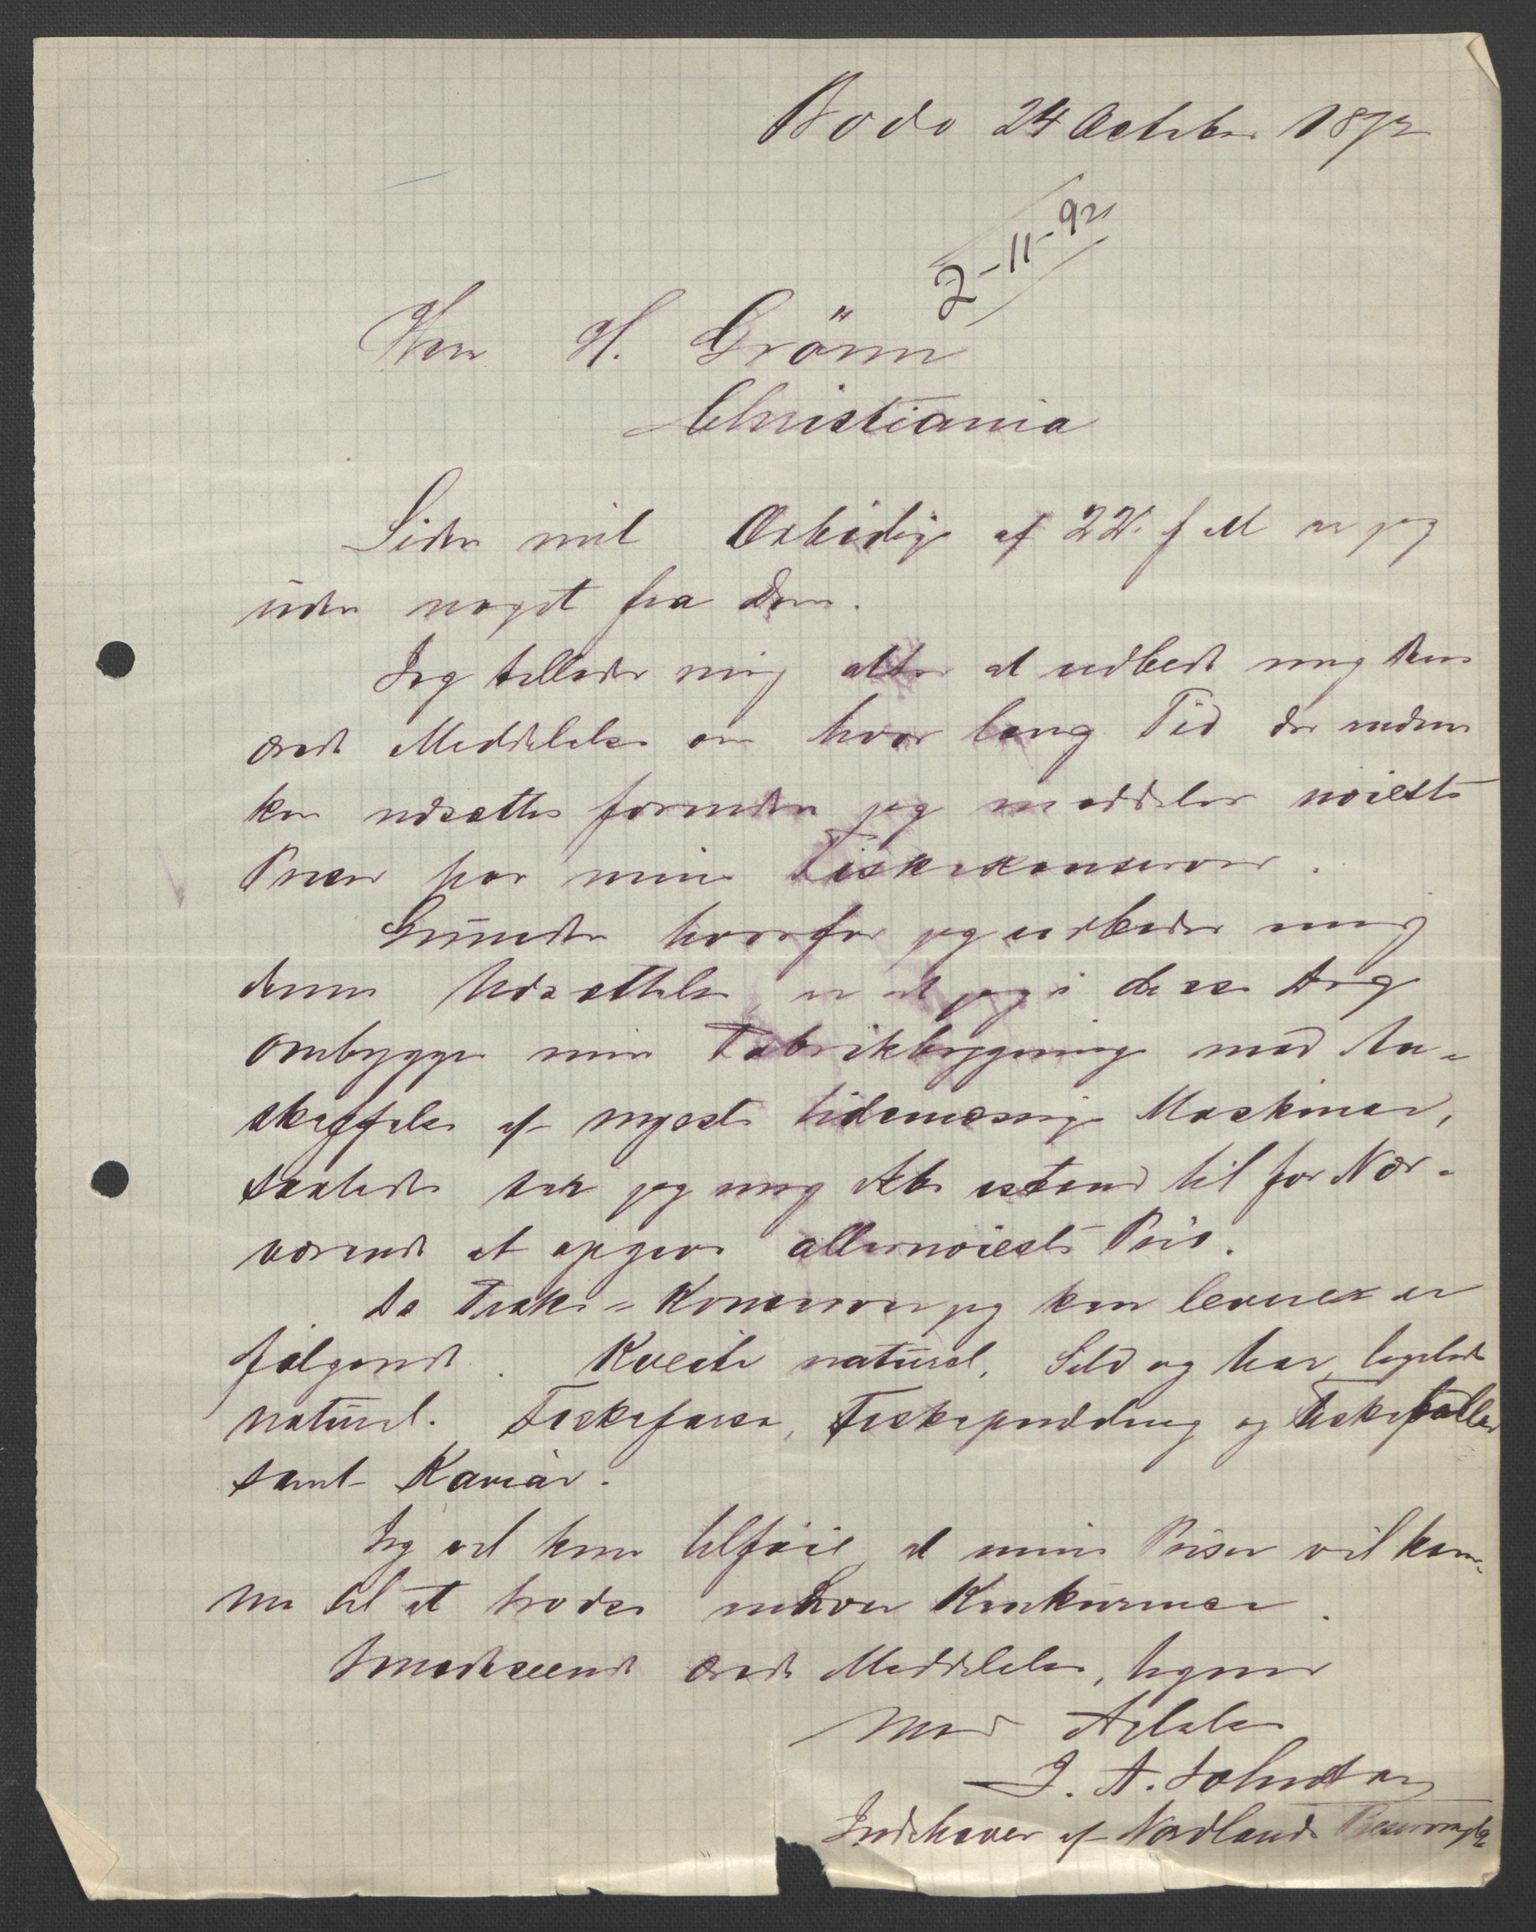 Bodo 24 October 1892
2-11-92
Herr H. Grönn
Christiania
Siden mit Ærbødige af 22. f M er jeg
uden noget fra Dem.
Jeg tillader mig atter at udbede mig Deres
ærede Meddelelse om hvor lang Tid der endnu
kan udsættes forinden jeg meddeler nøieste
Priser paa mine Fiskekonserver.
Grunden hvorfor jeg udbeder mig
denne Udsættelse, er at jeg i disse Dage
ombygger min Fabrikbygning med An-
skaffelse af nyeste tidsmæssige Maskiner,
saaledes ser jeg mig ikke istand til for Nær-
værende at opgive allernøieste Pris.
De Fiske-Konserver jeg kan levere er
følgende. Kveite naturel, Sild og ligeledes
naturel. Fiskefarse, Fiskepudding og Fiskeboller
samt Kaviar.
Jeg vil kun tilføie, at mine Priser vil kun-
ne til at enhver Konkurrence.
Imødeseende ærede Meddelelse, tegner
med Agtelse
J. A.
Indehaver af Nordlands